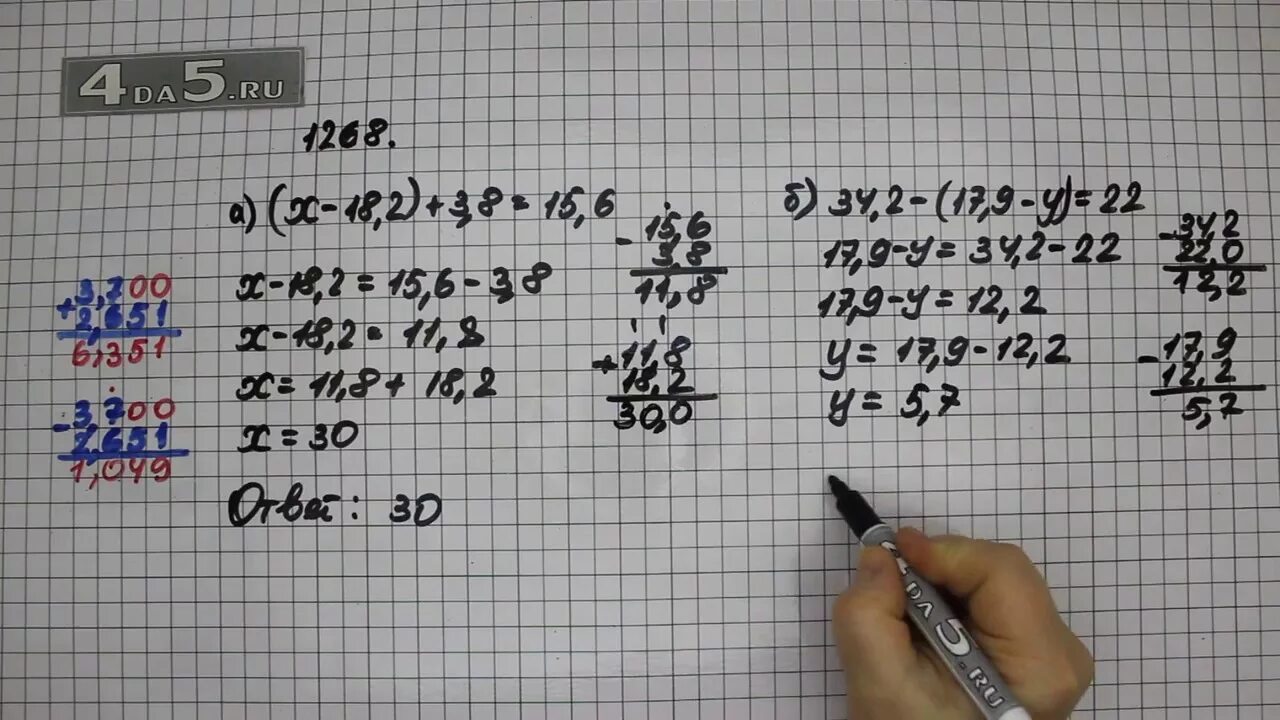 4DA5.RU
1268.
а) (x-18,2)+3,8=15,6
x-18,2=15,6-3,8
x-18,2=11,8
x=11,8+18,2
x=30
Ответ: 30
-15,6
3,8
11,8
+11,8
18,2
30,0
б) 34,2-(17,9-y)=22
17,9-y=34,2-22
17,9-y=12,2
y=17,9-12,2
y=5,7
-34,2
22,0
12,2
-17,9
12,2
5,7
+3,700
2,651
6,351
-3,700
2,651
1,049
4DA5.RU